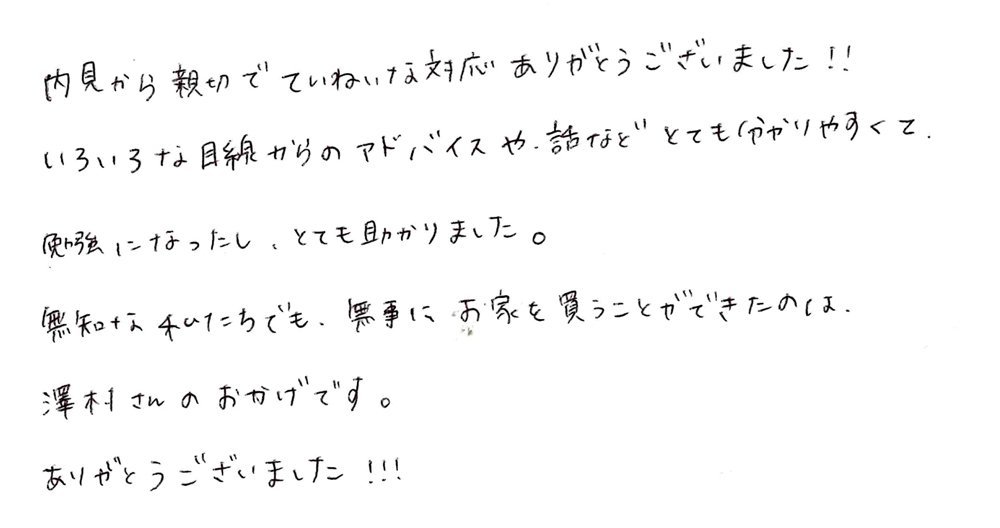 内見から親切でていねいな対応ありがとうございました!!
いろいろな目線からのアドバイスや、話などとても分かりやすくて、
勉強になったし、とても助かりました。
無知な私たちでも、無事にお家を買うことができたのは、
澤村さんのおかげです。
ありがとうございました!!!